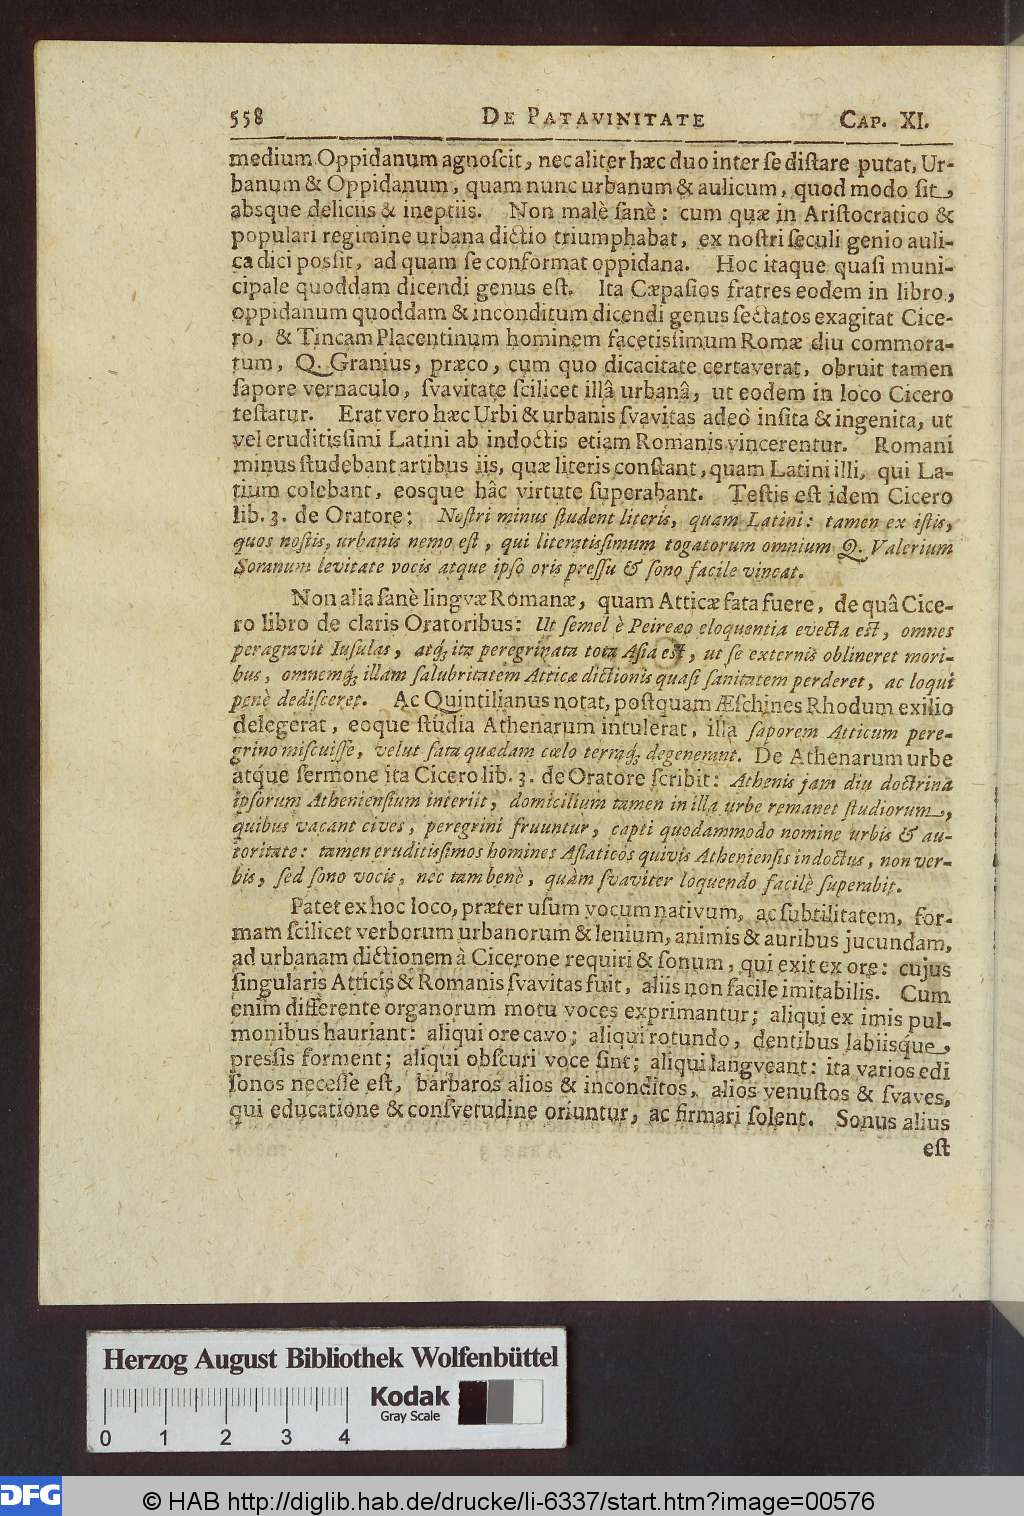 558 DE PATAVINITATE CAP. XI.
medium Oppidanum agnoſcit, nec aliter hæc duo inter ſe diſtare putat, Ur-
banum & Oppidanum, quam nunc urbanum & aulicum, quod modo ſit,
absque deliciis & ineptiis. Non malè ſanè: cum quæ in Ariſtocratico &
populari regimine urbana dictio triumphabat, ex noſtri ſeculi genio auli-
ca dici poſſit, ad quam ſe conformat oppidana. Hoc itaque quaſi muni-
cipale quoddam dicendi genus eſt. Ita Cæpaſios fratres eodem in libro,
oppidanum quoddam & inconditum dicendi genus ſectatos exagitat Cice-
ro, & Tincam Placentinum hominem facetiſſimum Romæ diu commora-
tum, Q. Granius, præco, cum quo dicacitate certaverat, obruit tamen
ſapore vernaculo, ſvavitate ſcilicet illâ urbanâ, ut eodem in loco Cicero
teſtatur. Erat vero hæc Urbi & urbanis ſvavitas adeò inſita & ingenita, ut
vel eruditiſſimi Latini ab indoctis etiam Romanis vincerentur. Romani
minus ſtudebant artibus iis, quæ literis conſtant, quam Latini illi, qui La-
tium colebant, eosque hâc virtute ſuperabant. Teſtis eſt idem Cicero
lib. 3. de Oratore: Noſtri minus ſtudent literis, quam Latini: tamen ex iſtis,
quos noſtis, urbanis nemo eſt, qui literatiſſimum togatorum omnium Q. Valerium
Soranum levitate vocis atque ipſo oris preſſu & ſono facile vincat.
Non alia ſanè lingvæ Romanæ, quam Atticæ fata fuere, de quâ Cice-
ro libro de claris Oratoribus: Ut ſemel è Peireæo eloquentia evecta eſt, omnes
peragravit Iuſulas, atq; ita peregrinata tota Aſia eſt, ut ſe externis oblineret mori-
bus, omnemq; illam ſalubritatem Atticæ dictionis quaſi ſanitatem perderet, ac loqui
penè dediſceret. Ac Quintilianus notat, poſtquam Æſchines Rhodum exilio
delegerat, eoque ſtudia Athenarum intulerat, illa ſaporem Atticum pere-
grino miſcuiſſe, velut ſata quædam cœlo terraq; degenerant. De Athenarum urbe
atque ſermone ita Cicero lib. 3. de Oratore ſcribit: Athenis jam diu doctrina
ipſorum Athenienſium interiit, domicilium tamen in illa urbe remanet ſtudiorum,
quibus vacant cives, peregrini fruuntur, capti quodammodo nomine urbis & au-
toritate: tamen eruditiſſimos homines Aſiaticos quivis Athenienſis indoctus, non ver-
bis, ſed ſono vocis, nec tam benè, quàm ſvaviter loquendo facilè ſuperabit.
Patet ex hoc loco, præter uſum vocum nativum, ac ſubtilitatem, for-
mam ſcilicet verborum urbanorum & lenium, animis & auribus jucundam,
ad urbanam dictionem à Cicerone requiri & ſonum, qui exit ex ore: cujus
ſingularis Atticis & Romanis ſvavitas fuit, aliis non facile imitabilis. Cum
enim differente organorum motu voces exprimantur; aliqui ex imis pul-
monibus hauriant: aliqui ore cavo; aliqui rotundo, dentibus labiisque,
preſſis forment; aliqui obſcuri voce ſint; aliqui langveant: ita varios edi
ſonos neceſſe eſt, barbaros alios & inconditos, alios venuſtos & ſvaves,
qui educatione & conſvetudine oriuntur, ac firmari ſolent. Sonus alius
eſt
Herzog August Bibliothek Wolfenbüttel
Kodak
Gray Scale
0 1 2 3 4
DFG
© HAB http://diglib.hab.de/drucke/li-6337/start.htm?image=00576